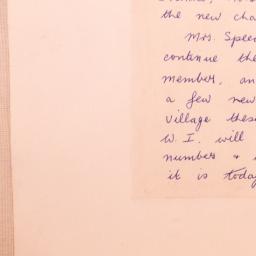 the new cha
Mrs. Speed
continue the
member, an
a few new
village these
W. I. will
numbers &
it is today